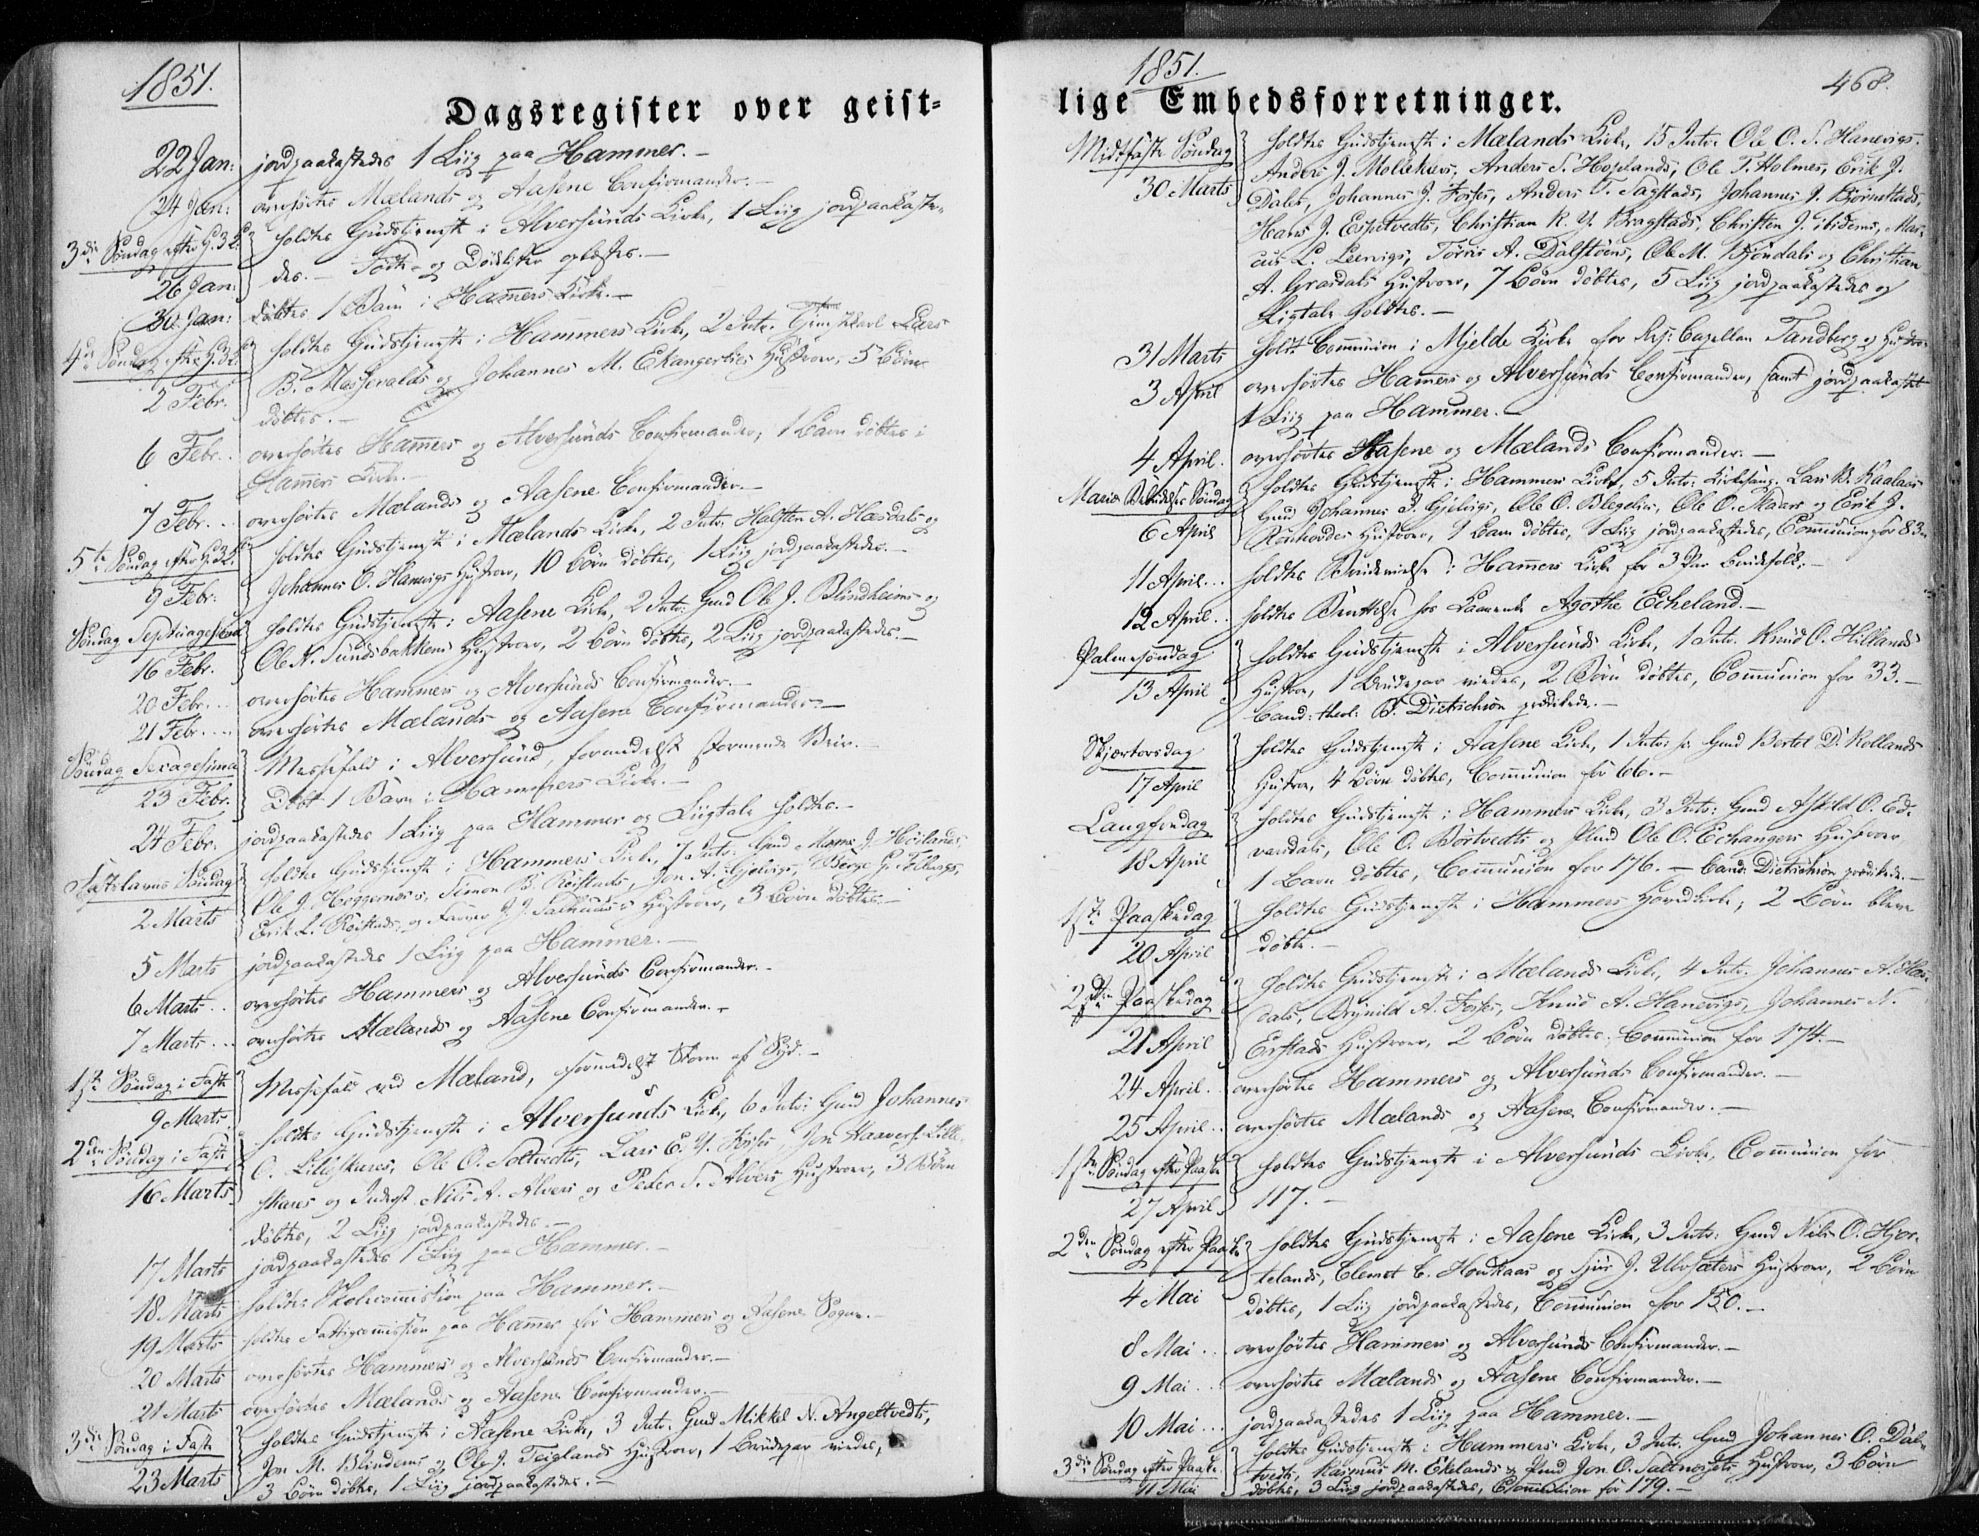 1851.
Dagsregister over geist=
22 Jan: jordpaakastedes 1 Liig paa Hammer.—
24 Jan: overhørtes Mælands og Aasene Confirmander.—
3die Søndag efter H.3.K. holdtes Gudstjeneste i Alversunds Kirke, 1 Liig jordpaakaste-
26 Jan: des.— Føde- og Dødslister oplæstes.—
30 Jan: døbtes 1 Barn i Hamers Kirke.—
4de Søndag efter H.3.K. holdtes Gudstjeneste i Hammers Kirke, 2 Intr. Lars
2 Febr. B. Mosfevalds og Johannes M. Echangerties Hustruer, 5 Børn
døbtes.—
6 Febr.. overhørtes Hamers og Alversunds Confirmander, 1 Barn døbtes i
Hamers Kirke.—
7 Febr... overhørtes Mælands og Aasene Confirmander.—
5te Søndag efter H.3.K. holdtes Gudstjeneste i Mælands Kirke, 2 Intr. Halsten A. Hæsdals og
9 Febr: Johannes O. Hanevigs Hustruer, 10 Børn døbtes, 1 Liig jordpaakastedes.—
Søndag Septuagesima holdtes Gudstjeneste i Aasene Kirke, 2 Intr: Gmd Ole J. Blindheims og
16 Febr. Ole N. Sundsbakkens Hustruer, 2 Børn døbtes, 2 Liig jordpaakastedes.—
20 Febr... overhørtes Hammers og Alversunds Confirmander.—
21 Febr.... overhørtes Mælands og Aasene Confirmander.—
Søndag Sexagesima Messefald i Alversund, formedelst stormende Veir.—
23 Febr. Døbt 1 Barn i Hammers Kirke.—
24 Febr. jordpaakastedes 1 Liig paa Hammer og Liigtale holdtes.—
Fastelavns Søndag holdtes Gudstjeneste i Hammers Kirke, 7 Intr. Gmd Mons J. Höilands,
2 Marts Ole J. Höppernæs's, Simon B. Röistads, Jon A. Gjelvigs, Börge G.
Erik L. Röistads, og J. J. Hustruer, 3 Børn døbtes.—
5 Marts jordpaakastedes 1 Liig paa Hammer.—
6 Marts.. overhørtes Hammers og Alversunds Confirmander.—
7 Marts... overhørtes Mælands og Aasene Confirmander.—
1ste Søndag i Faste Messefald ved Mæland, formedelst Storm af Syd.—
9 Marts
2den Søndag i Faste holdtes Gudstjeneste i Alversunds Kirke, 6 Intr: Gmd Johannes
16 Marts O. Lilleskares, Ole O. Toltvedts, Lars E. Y. Fosses, Jon Haavers. Lille-
skares og Inderst Nils A. Alvers og Peder S. Alvers Hustruer, 3 Børn
døbtes, 2 Liig jordpaakastedes.—
17 Marts jordpaakastedes 1 Liig paa Hammer.—
18 Marts holdtes Skolecommission paa Hammer.—
19 Marts holdtes Fattigcommission paa Hamer for Hammers og Aasene Sogne.—
20 Marts overhørtes Hammers og Alversunds Confirmander.—
21 Marts overhørtes Mælands og Aasene Confirmander.—
3die Søndag i Faste holdtes Gudstjeneste i Aasene Kirke, 3 Intr. Gmd Mikkel N. Angeltvedts,
23 Marts Jon M. Blindems og Ole J. Teiglands Hustruer, 1 Brudepar viedes,
3 Børn døbtes, 1 Liig jordpaakastedes.—
1851.
lige Embedsforretninger.
468.
Midtfaste Søndag holdtes Gudstjeneste i Mælands Kirke, 15 Intr. Ole O. S. Hanevigs,
30 Marts Anders J. Molvikers, Anders S. Hoplands, Ole T. Holmes, Erik J.
Dales, Johannes J. Fosses, Anders T. Tagstads, Johannes J. Bjørnstads,
Hans J. Espetvedts, Christian R. Y. Bragstads, Christen J. ibidems, Mar-
cus L. Leervigs, Tørris A. Dalstöens, Ole M. Bjöndals og Christian
A. Grasdals Hustruer, 7 Børn døbtes, 5 Liig jordpaakastedes og
Ligtale holdtes.—
31 Marts holdt Communion i Mjelde Kirke for Res: Capellan Tandberg og Hustru
3 April overhørtes Hamers og Alversunds Confirmander, samt jordpaakastet
1 Liig paa Hammer.—
4 April. overhørtes Aasene og Mælands Confirmander.—
Mariæ Bebudelses Søndag holdtes Gudstjeneste i Hammers Kirke, 5 Intr. Kirkesang. Lars B. Kaalaas's
6 April Gmd Johannes B. Gjelvigs, Ole O. Blegelia, Ole O. Skaars og Erik J.
Rönhovdes Hustruer, 1 Barn døbtes, 1 Liig jordpaakastedes, Communion for 83.—
11 April... holdtes Brudevielse i Hamers Kirke for 3 Par Brudefolk.—
12 April.. holdtes Skriftemaal hos Agathe Echeland.—
Palmesøndag holdtes Gudstjeneste i Alversunds Kirke, 1 Intr. Knud O. Hillands
13 April Hustru, 1 Brudepar viedes, 2 Børn døbtes, Communion for 33.—
Cand: theol: B. Dietrichson prædikede.—
Skjærtorsdag holdtes Gudstjeneste i Aasene Kirke, 1 Intr. Gmd Bertel D. Rollands
17 April Hustru, 4 Børn døbtes, Communion for 66.—
Langfredag holdtes Gudstjeneste i Hammers Kirke, 3 Intr: Gmd Askild O. Ed-
18 April vardals, Ole O. Börtvedts og Ole O. Echangers Hustruer
1 Barn døbtes, Communion for 176.— Cand: Dietrichson prædikede.—
1ste Paaskedag holdtes Gudstjeneste i Hammers Hovedkirke, 2 Börn bleve
20 April døbte.—
2den Paaskedag holdtes Gudstjeneste i Mælands Kirke, 4 Intr. Johannes A. Hæs-
21 April dals, Brynild A. Fosses, Knud A. Hanevigs, Johannes N.
Eirstads Hustruer, 2 Børn døbtes. Communion for 174.—
24 April. overhørtes Hammers og Alversunds Confirmander.—
25 April.. overhørtes Mælands og Aasene Confirmander.—
1ste Søndag efter Paaske holdtes Gudstjeneste i Alversunds Kirke, Communion for
27 April. 117.—
2den Søndag efter Paaske holdtes Gudstjeneste i Aasene Kirke, 3 Intr: Gmd Nils O. Hjor-
4 Mai telands, Clemet C. Houkaas og Sjur J. Ulvsæters Hustruer, 2 Børn
døbtes, 1 Liig jordpaakastedes, Communion for 150.—
8 Mai.. overhørtes Hammers og Alversunds Confirmander.—
9 Mai.. overhørtes Mælands og Aasene Confirmander.—
10 Mai... jordpaakastedes 1 Liig paa Hammer.—
3die Søndag efter Paaske holdtes Gudstjeneste i Hammers Kirke, 3 Intr. Gmd Johannes O. Dal-
11 Mai tvedts, Rasmus M. Ekelands og Jon O. Saltnesets Hustruer, 3 Børn
døbtes, 3 Liig jordpaakastedes, Communion for 179.—